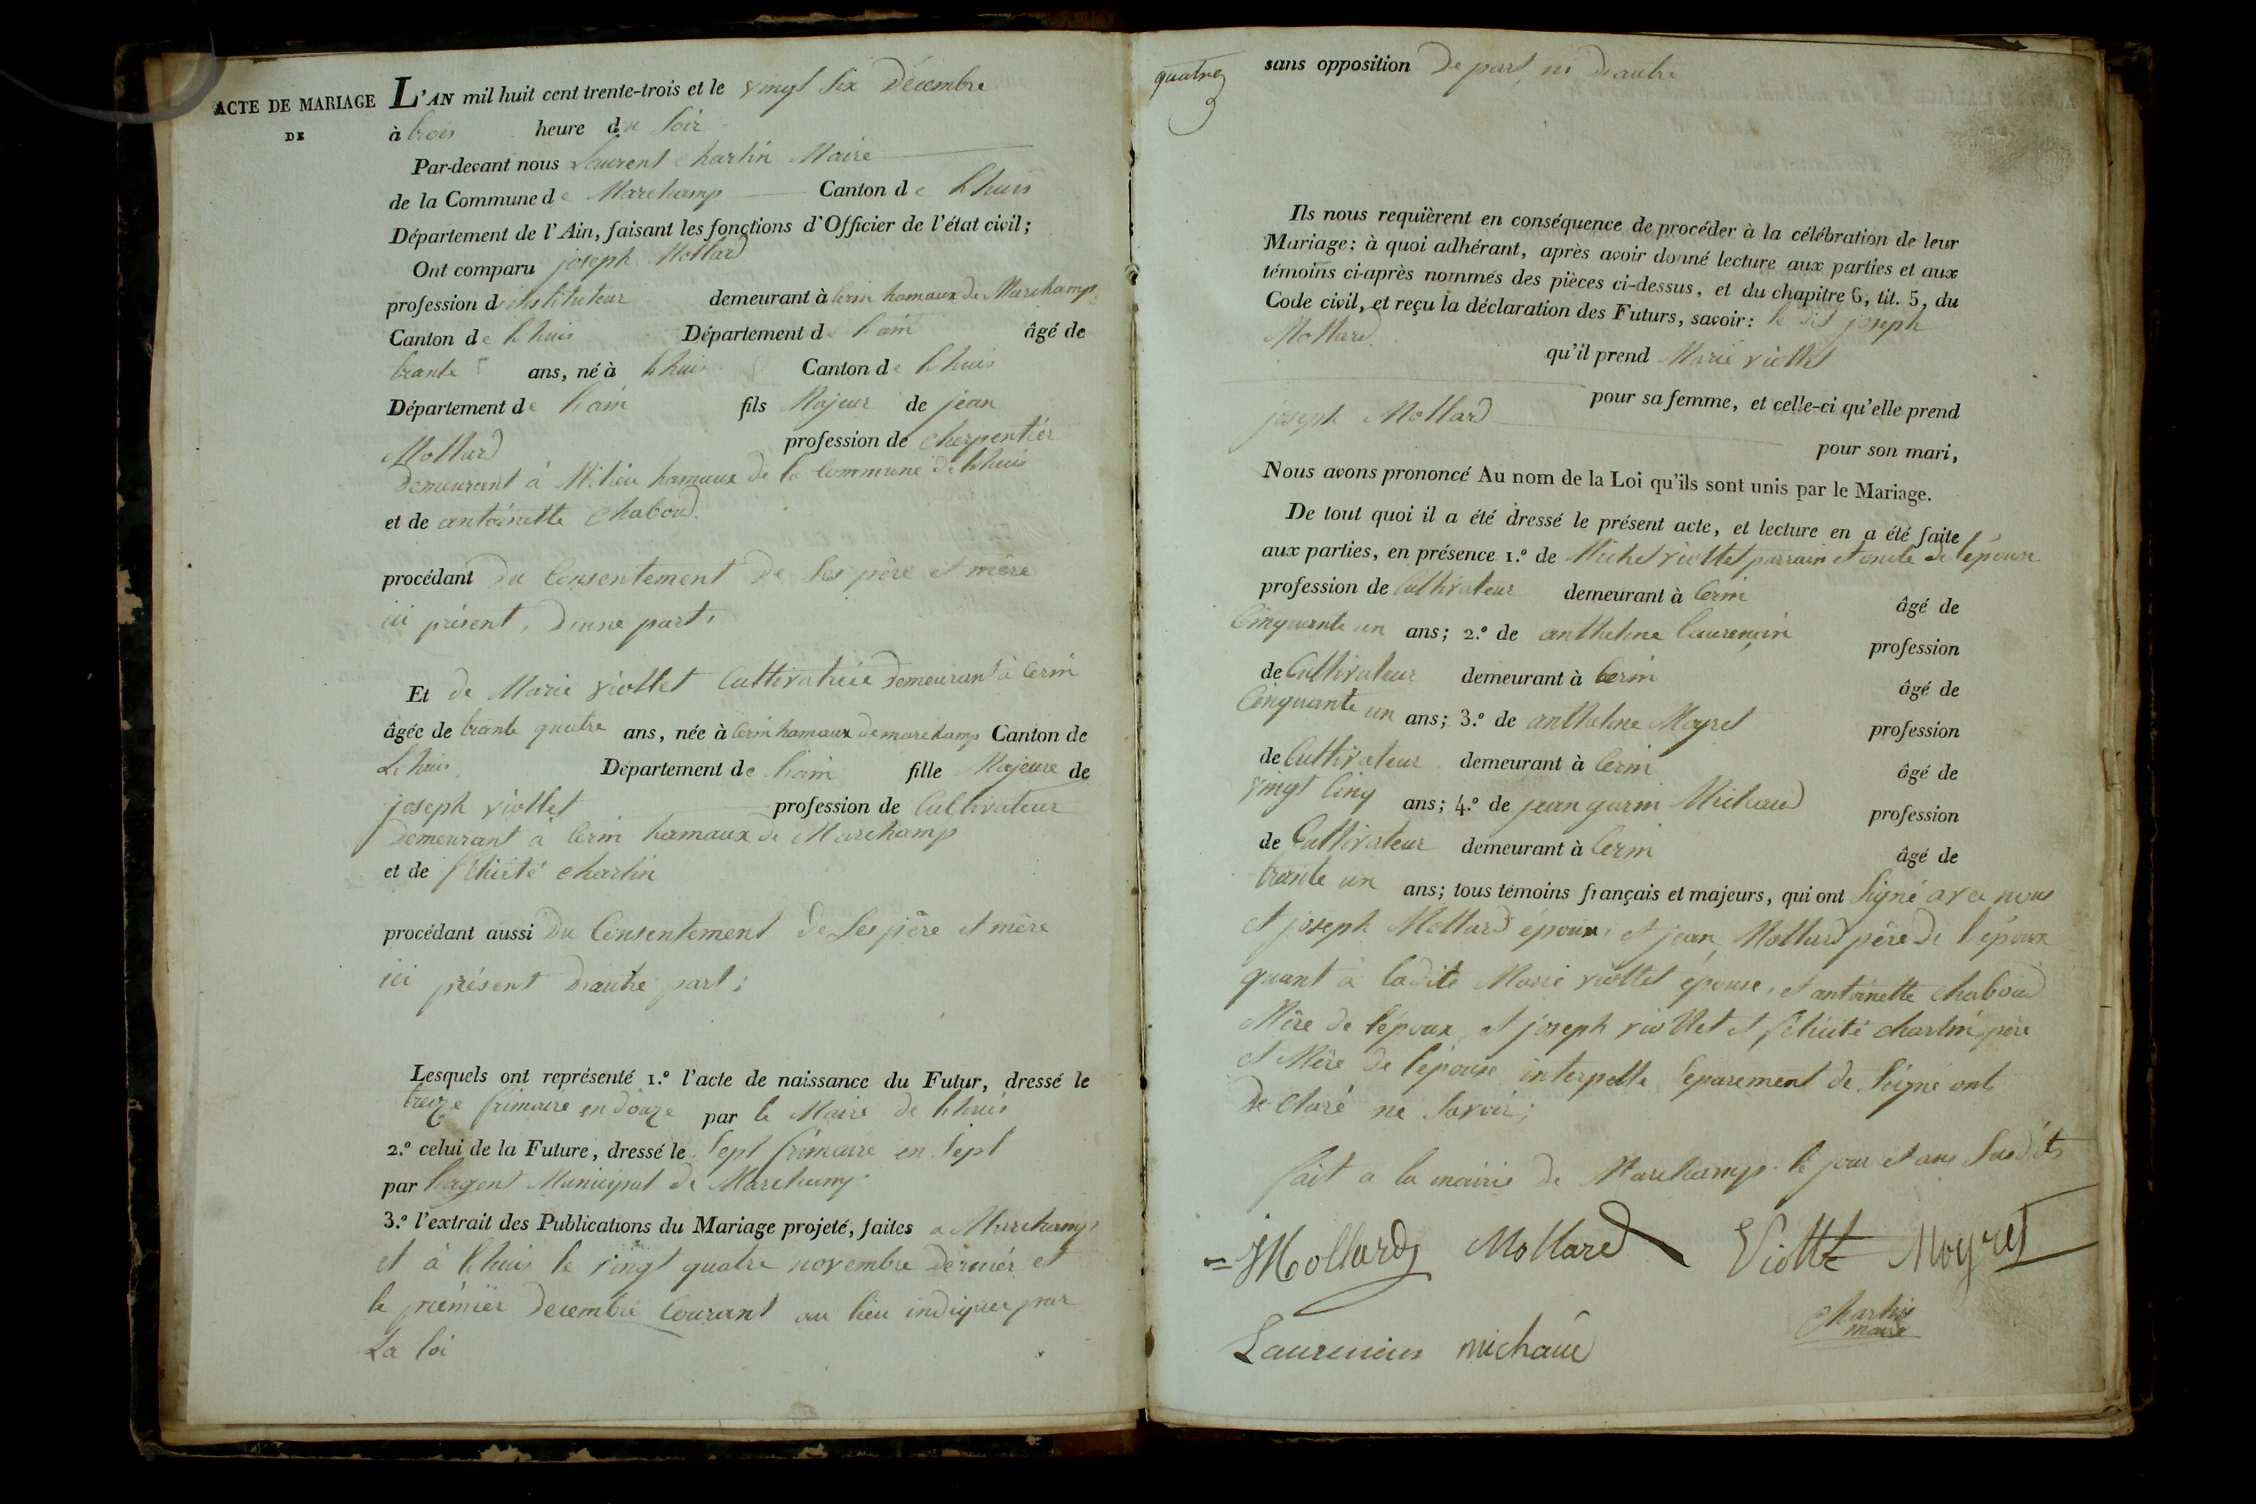 ACTE DE MARIAGE
DE
L'AN mil huit cent trente-trois et le vingt six Décembre
à trois heure du Soir
Par-devant nous Laurent Charlin Maire
de la Commune de Marchamp Canton de Lhuis
Département de l'Ain, faisant les fonctions d'Officier de l'état civil;
Ont comparu joseph Mollard
profession d'instituteur demeurant à Cerin hamaux de Marchamp
Canton de Lhuis Département de l'ain âgé de
trante ans, né à Lhuis Canton de Lhuis
Département de l'ain fils Majeur de jean
Mollard profession de Cherpentier
Demeurant à Milieu hamaux de la Commune de Lhuis
et de antoinette Chaboud
procédant du Consentement de Ses père et mère
ici présent, D'unne part,
Et de Marie viollet Cultivatrice Demeurant à Cerin
âgée de trante quatre ans, née à Cerin hamaux de marchamp Canton de
Lhuis Département de l'ain fille Majeure de
joseph viollet profession de Cultivateur
Demeurant à Cerin hamaux de Marchamp
et de félicité Charlin
procédant aussi Du Consentement de Ses père et mère
ici présent D'autre part;
Lesquels ont représenté 1.º l'acte de naissance du Futur, dressé le
treize frimaire en douze par le Maire de Lhuis
2.º celui de la Future, dressé le Sept frimaire en Sept
par l'agent Municipal de Marchamp
3.º l'extrait des Publications du Mariage projeté, faites a Marchamp
et à Lhuis le vingt quatre novembre dernier et
le prémier decembre Courant au lieu indiquer par
La loi
quatre
sans opposition De part, ni D'autre
Ils nous requièrent en conséquence de procéder à la célébration de leur
Mariage: à quoi adhérant, après avoir donné lecture aux parties et aux
témoins ci-après nommés des pièces ci-dessus, et du chapitre 6, tit. 5, du
Code civil, et reçu la déclaration des Futurs, savoir: le dit joseph
Mollard qu'il prend Marie viollet
pour sa femme, et celle-ci qu'elle prend
joseph Mollard pour son mari,
Nous avons prononcé Au nom de la Loi qu'ils sont unis par le Mariage.
De tout quoi il a été dressé le présent acte, et lecture en a été faite
aux parties, en présence 1.º de Michel viollet parrain et oncle de l'épouse
profession de Cultivateur demeurant à Cerin âgé de
Cinquante un ans; 2.º de anthelme Laurençin profession
de Cultivateur demeurant à Cerin âgé de
Cinquante un ans; 3.º de anthelme Moyret profession
de Cultivateur demeurant à Cerin âgé de
vingt Cinq ans; 4.º de jean garin Michaud profession
de Cultivateur demeurant à Cerin âgé de
trante un ans; tous témoins français et majeurs, qui ont Signé avec nous
et joseph Mollard époux, et jean Mollard père de l'époux
quant à ladite Marie viollet épouse, et antoinette Chaboud
Mère de l'époux, et joseph viollet et félicité charlin père
et Mère de l'épouse interpellé Séparement de Signé ont
Déclaré ne Savoir;
fait a la mairie de Marchamp le jour et ans Susdits
JMollard Mollard Viollet Moyret
Charlin
maire
Laurencin michaud